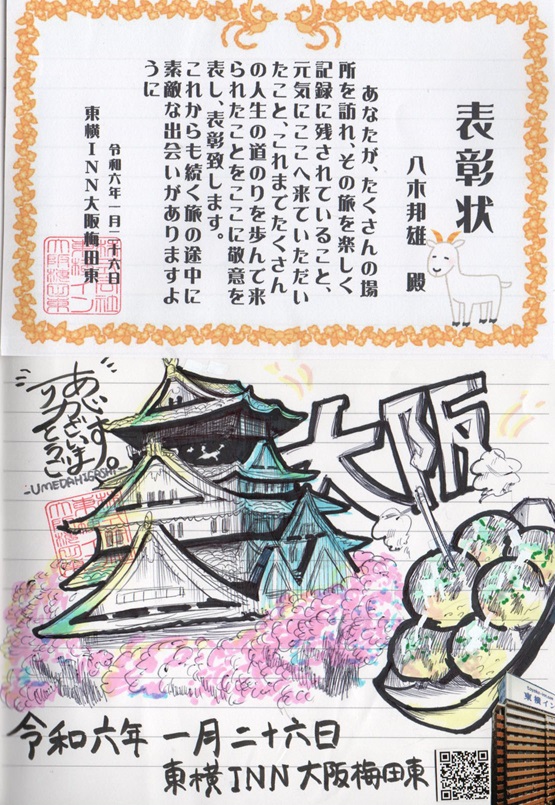 表彰状
八木邦雄 殿
あなたが、たくさんの場
所を訪れ、その旅を楽しく
記録に残されていること、
元気にここへ来ていただい
たこと、これまでたくさん
の人生の道のりを歩んで来
られたことをここに敬意を
表し、表彰致します。
これからも続く旅の途中に
素敵な出会いがありますよ
うに
令和六年一月二十六日
東横INN大阪梅田東
大阪
ありがとうございます。
-UMEDAHIGASHI-
東横イン
令和六年 一月二十六日
東横INN大阪梅田東